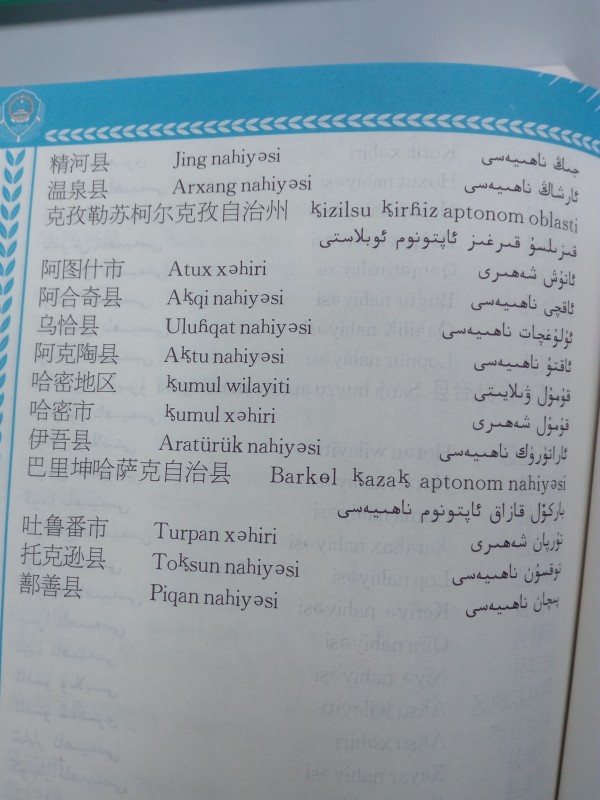 精河县 Jing nahiyəsi جىڭ ناھىيەسى
温泉县 Arxang nahiyəsi ئارشاڭ ناھىيەسى
克孜勒苏柯尔克孜自治州 ⱪizilsu ⱪirƣiz aptonom oblasti
قىزىلسۇ قىرغىز ئاپتونوم ئوبلاستى
阿图什市 Atux xəhiri ئاتۇش شەھىرى
阿合奇县 Aⱪqi nahiyəsi ئاقچى ناھىيەسى
乌恰县 Uluƣqat nahiyəsi ئۇلۇغچات ناھىيەسى
阿克陶县 Aⱪtu nahiyəsi ئاقتۇ ناھىيەسى
哈密地区 ⱪumul wilayiti قۇمۇل ۋىلايىتى
哈密市 ⱪumul xəhiri قۇمۇل شەھىرى
伊吾县 Aratürük nahiyəsi ئاراتۈرۈك ناھىيەسى
巴里坤哈萨克自治县 Barkɵl ⱪazaⱪ aptonom nahiyəsi
باركۆل قازاق ئاپتونوم ناھىيەسى
吐鲁番市 Turpan xəhiri تۇرپان شەھىرى
托克逊县 Toⱪsun nahiyəsi توقسۇن ناھىيەسى
鄯善县 Piqan nahiyəsi پىچان ناھىيەسى